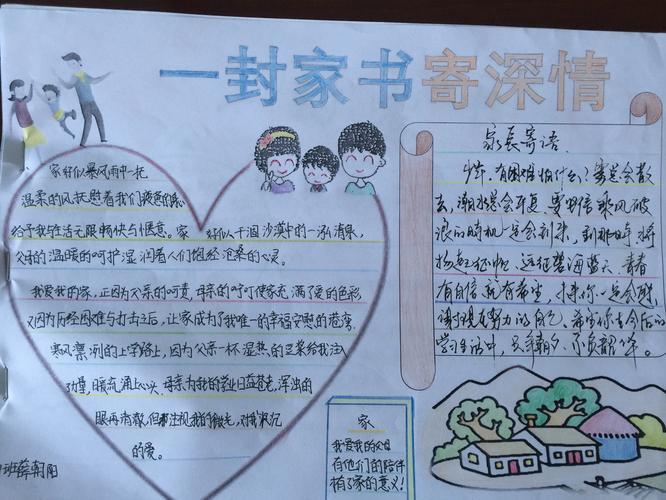 一封家书寄深情
家好似暴风雨中一把
温柔的风抚慰着我们疲惫的心
给予我生活无限畅快与惬意。家好似干涸沙漠中的一泓清泉,
父母的温暖的呵护湿润着人们饱经沧桑的心灵。
我爱我的家,正因为父亲的呵责,母亲的叮咛使家充满了爱的色彩
又因为历经困难与打击之后,让家成为了我唯一的幸福安慰的港湾
寒风凛冽的上学路上,因为父亲一杯湿热的豆浆给我注入
力量,暖气涌上心头。母亲为我的学业日益苍老,浑浊的
眼再清澈,但那注视我的微光,
的爱。
班薛朝阳
家
我爱我的父母
有他们的陪伴
有了家的意义!
家长寄语
有困难怕什么?雾总会散
去,潮水总会平复,要坚信乘风破
浪的时机总会到来,到那时将
扬起征帆,远征碧海蓝天,青春
有自信就有希望,将来你一定会感
谢现在努力的自己,希望你在今后的
学习生活中,只争朝夕,不负韶华。